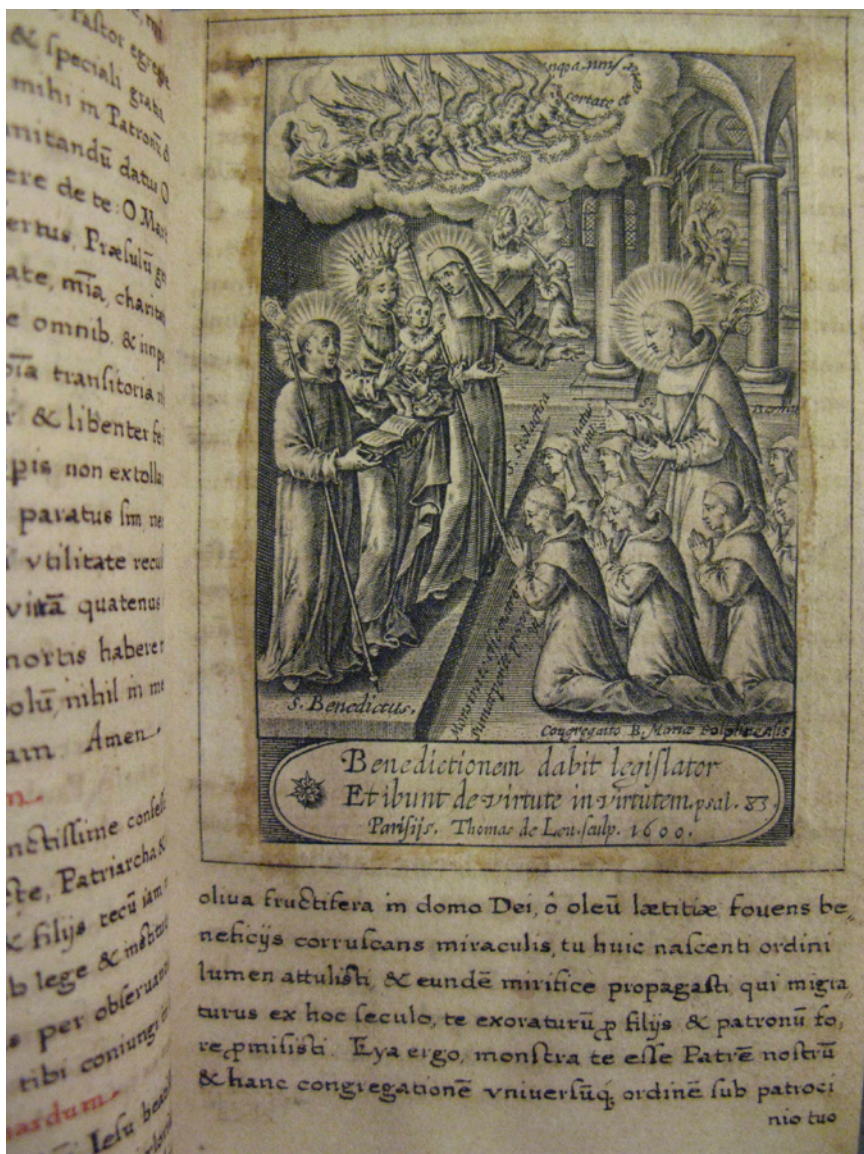 Pastor egregie
& speciali grati
mihi in Patronū &
mitandū datus O
ere de te: O Mar
ertus, Præsulū g
ate, mīa, charita
e omnib. & imp
bīa transitoria n
r & libenter fe
pis non extolla
paratus sim, ne
vtilitate recu
vitā quatenus
mortis haberet
olū, nihil in me
am Amen.
m.
nctissime confess
ste, Patriarcha &
& filijs tecū iam
b lege & institut
s per obseruan
tibi coniungi
nardum.
Iesu beat
certate et
S. Scolastica
Monstrate esse matrē
S. Benedictus.
Congregatio B. Mariæ
Benedictionem dabit legislator
Et ibunt de virtute in virtutem. psal. 83.
Parisijs. Thomas de Leu. sculp. 1600.
oliva fructifera in domo Dei, ô oleū lætitiæ fouens be„
neficijs corruscans miraculis, tu huic nascenti ordini
lumen attulisti, & eundē mirificè propagasti, qui migra„
turus ex hoc seculo, te exoraturū ꝓ filijs & patronū fo„
re ꝓmisisti. Eya ergo, monstra te esse Patrē nostrū
& hanc congregationē vniuersūq; ordinē sub patroci
nio tuo